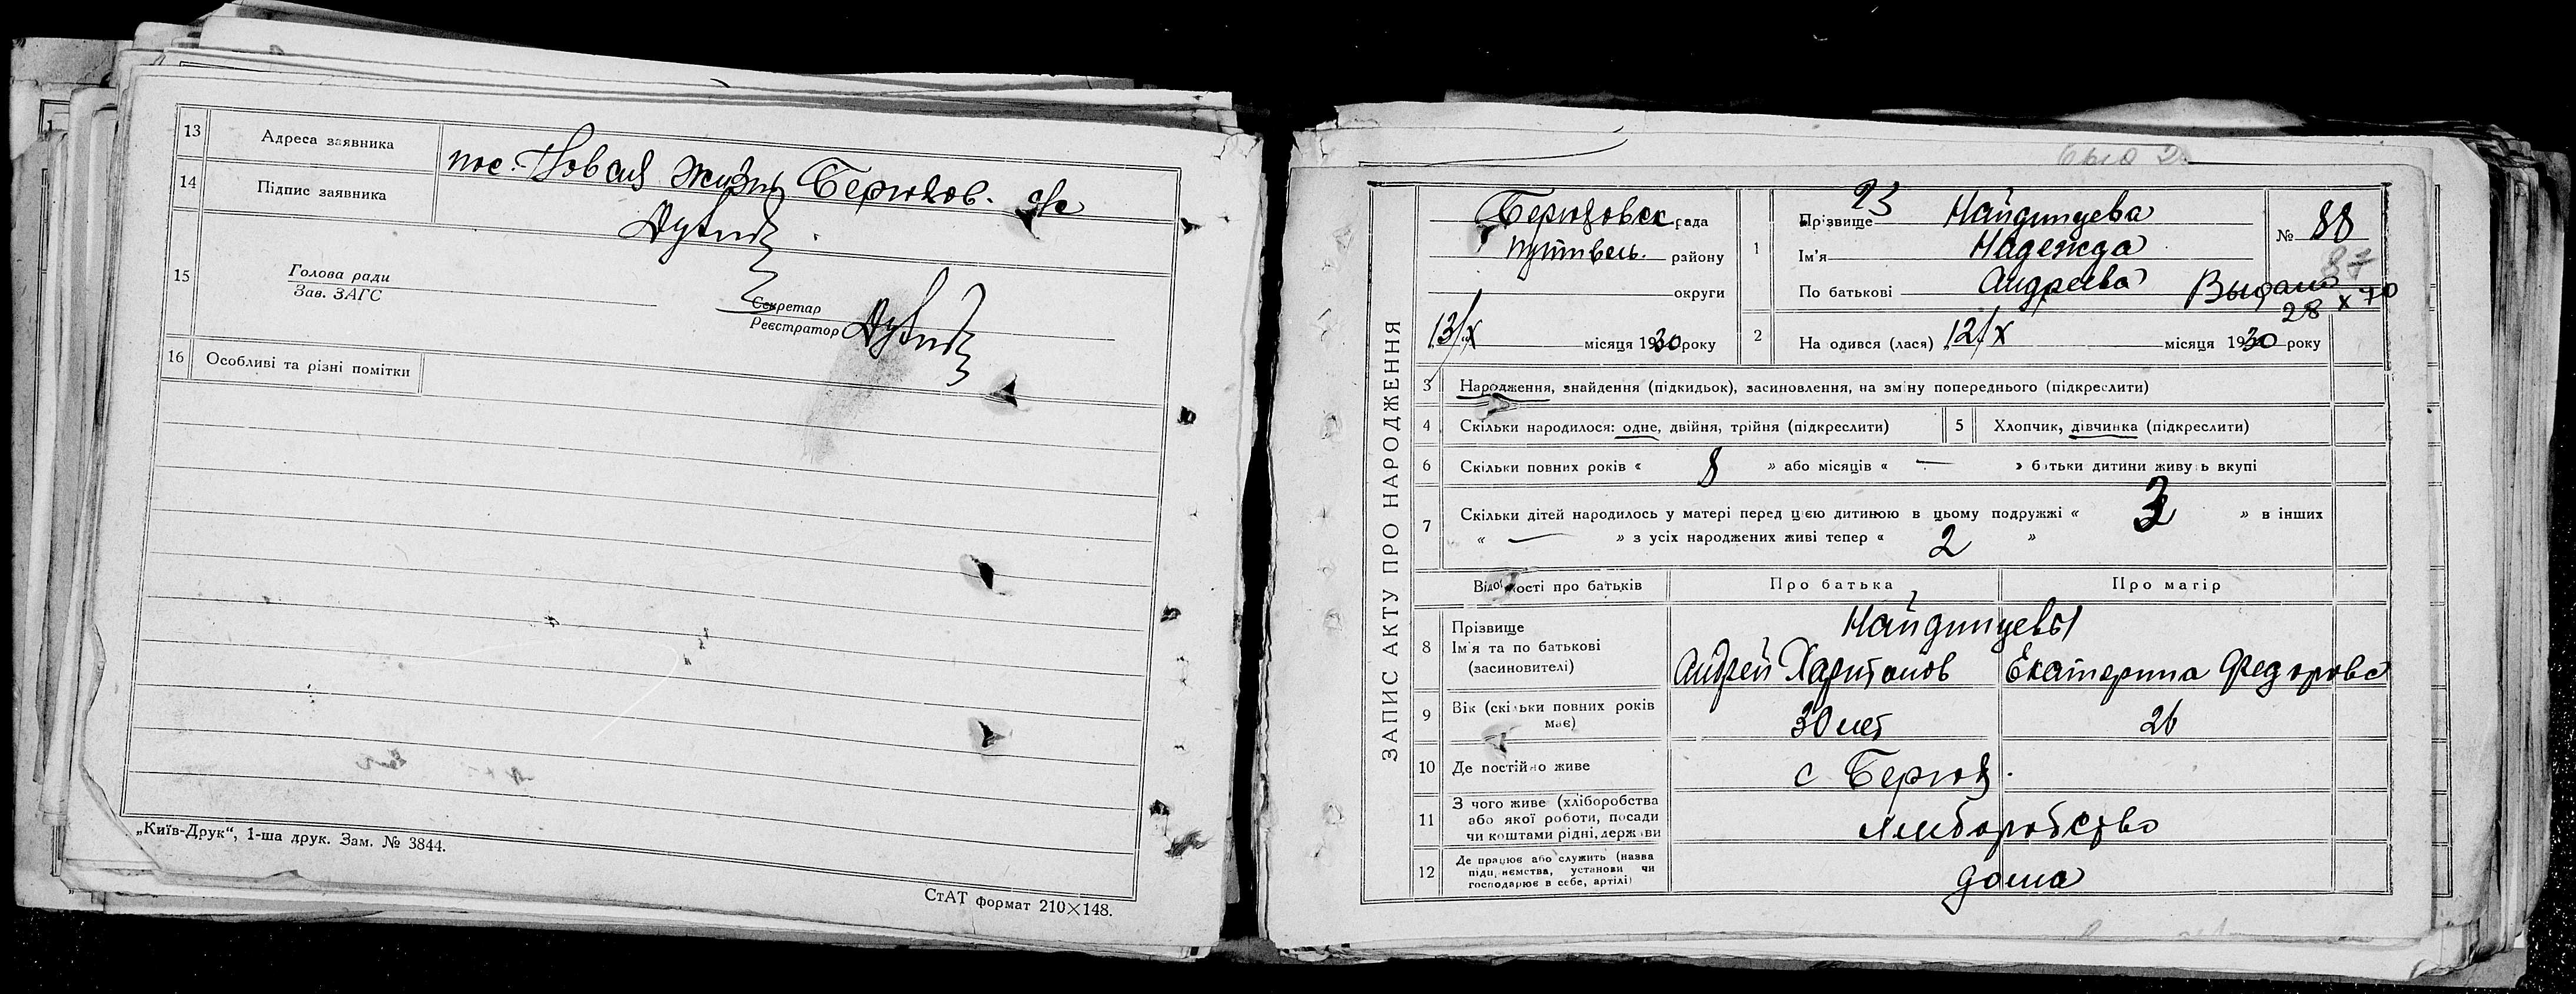 13 Адреса заявника пос. Новая жизнь Берюхов. с/с
14 Підпис заявника
15 Голова ради
Зав. ЗАГС
Секретар
Реєстратор
16 Особливі та різні помітки
„Київ-Друк“, 1-ша друк. Зам. № 3844.
СтАТ формат 210×148.
ЗАПИС АКТУ ПРО НАРОДЖЕННЯ
23
Берюховск рада
Путивль. району
округи
13/X місяця 1930 року
1 Прізвище Найдинцева
Ім'я Надежда
По батькові Андреева
№ 88
87
Выдано
28 X 70
2 На одився (лася) 12/X місяця 1930 року
3 Народження, знайдення (підкидьок), засиновлення, на зміну попереднього (підкреслити)
4 Скільки народилося: одне, двійня, трійня (підкреслити) 5 Хлопчик, дівчинка (підкреслити)
6 Скільки повних років « 8 » або місяців « — » батьки дитини живуть вкупі
7 Скільки дітей народилось у матері перед цією дитиною в цьому подружжі « 3 » в інших
« — » з усіх народжених живі тепер « 2 »
Відомости про батьків Про батька Про матір
8 Прізвище Найдинцевы
Ім'я та по батькові
(засиновителі) Андрей Харитонов Екатерина Федорова
9 Вік (скільки повних років має) 30 лет 26
10 Де постійно живе с Берюх.
11 З чого живе (хліборобства
або якої роботи, посади
чи коштами рідні, держави хлиборобство
12 Де працює або служить (назва
підприємства, установи чи
господарює в себе, артілі) дома